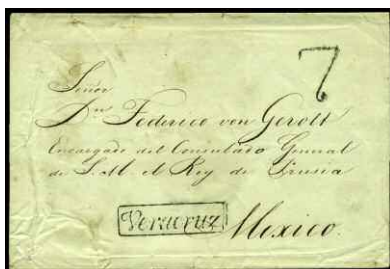 7
Señor
Dn Federico von Gerolt
Encargado del Consulado General
de S. M. el Rey de Prusia
Veracruz
Mexico.